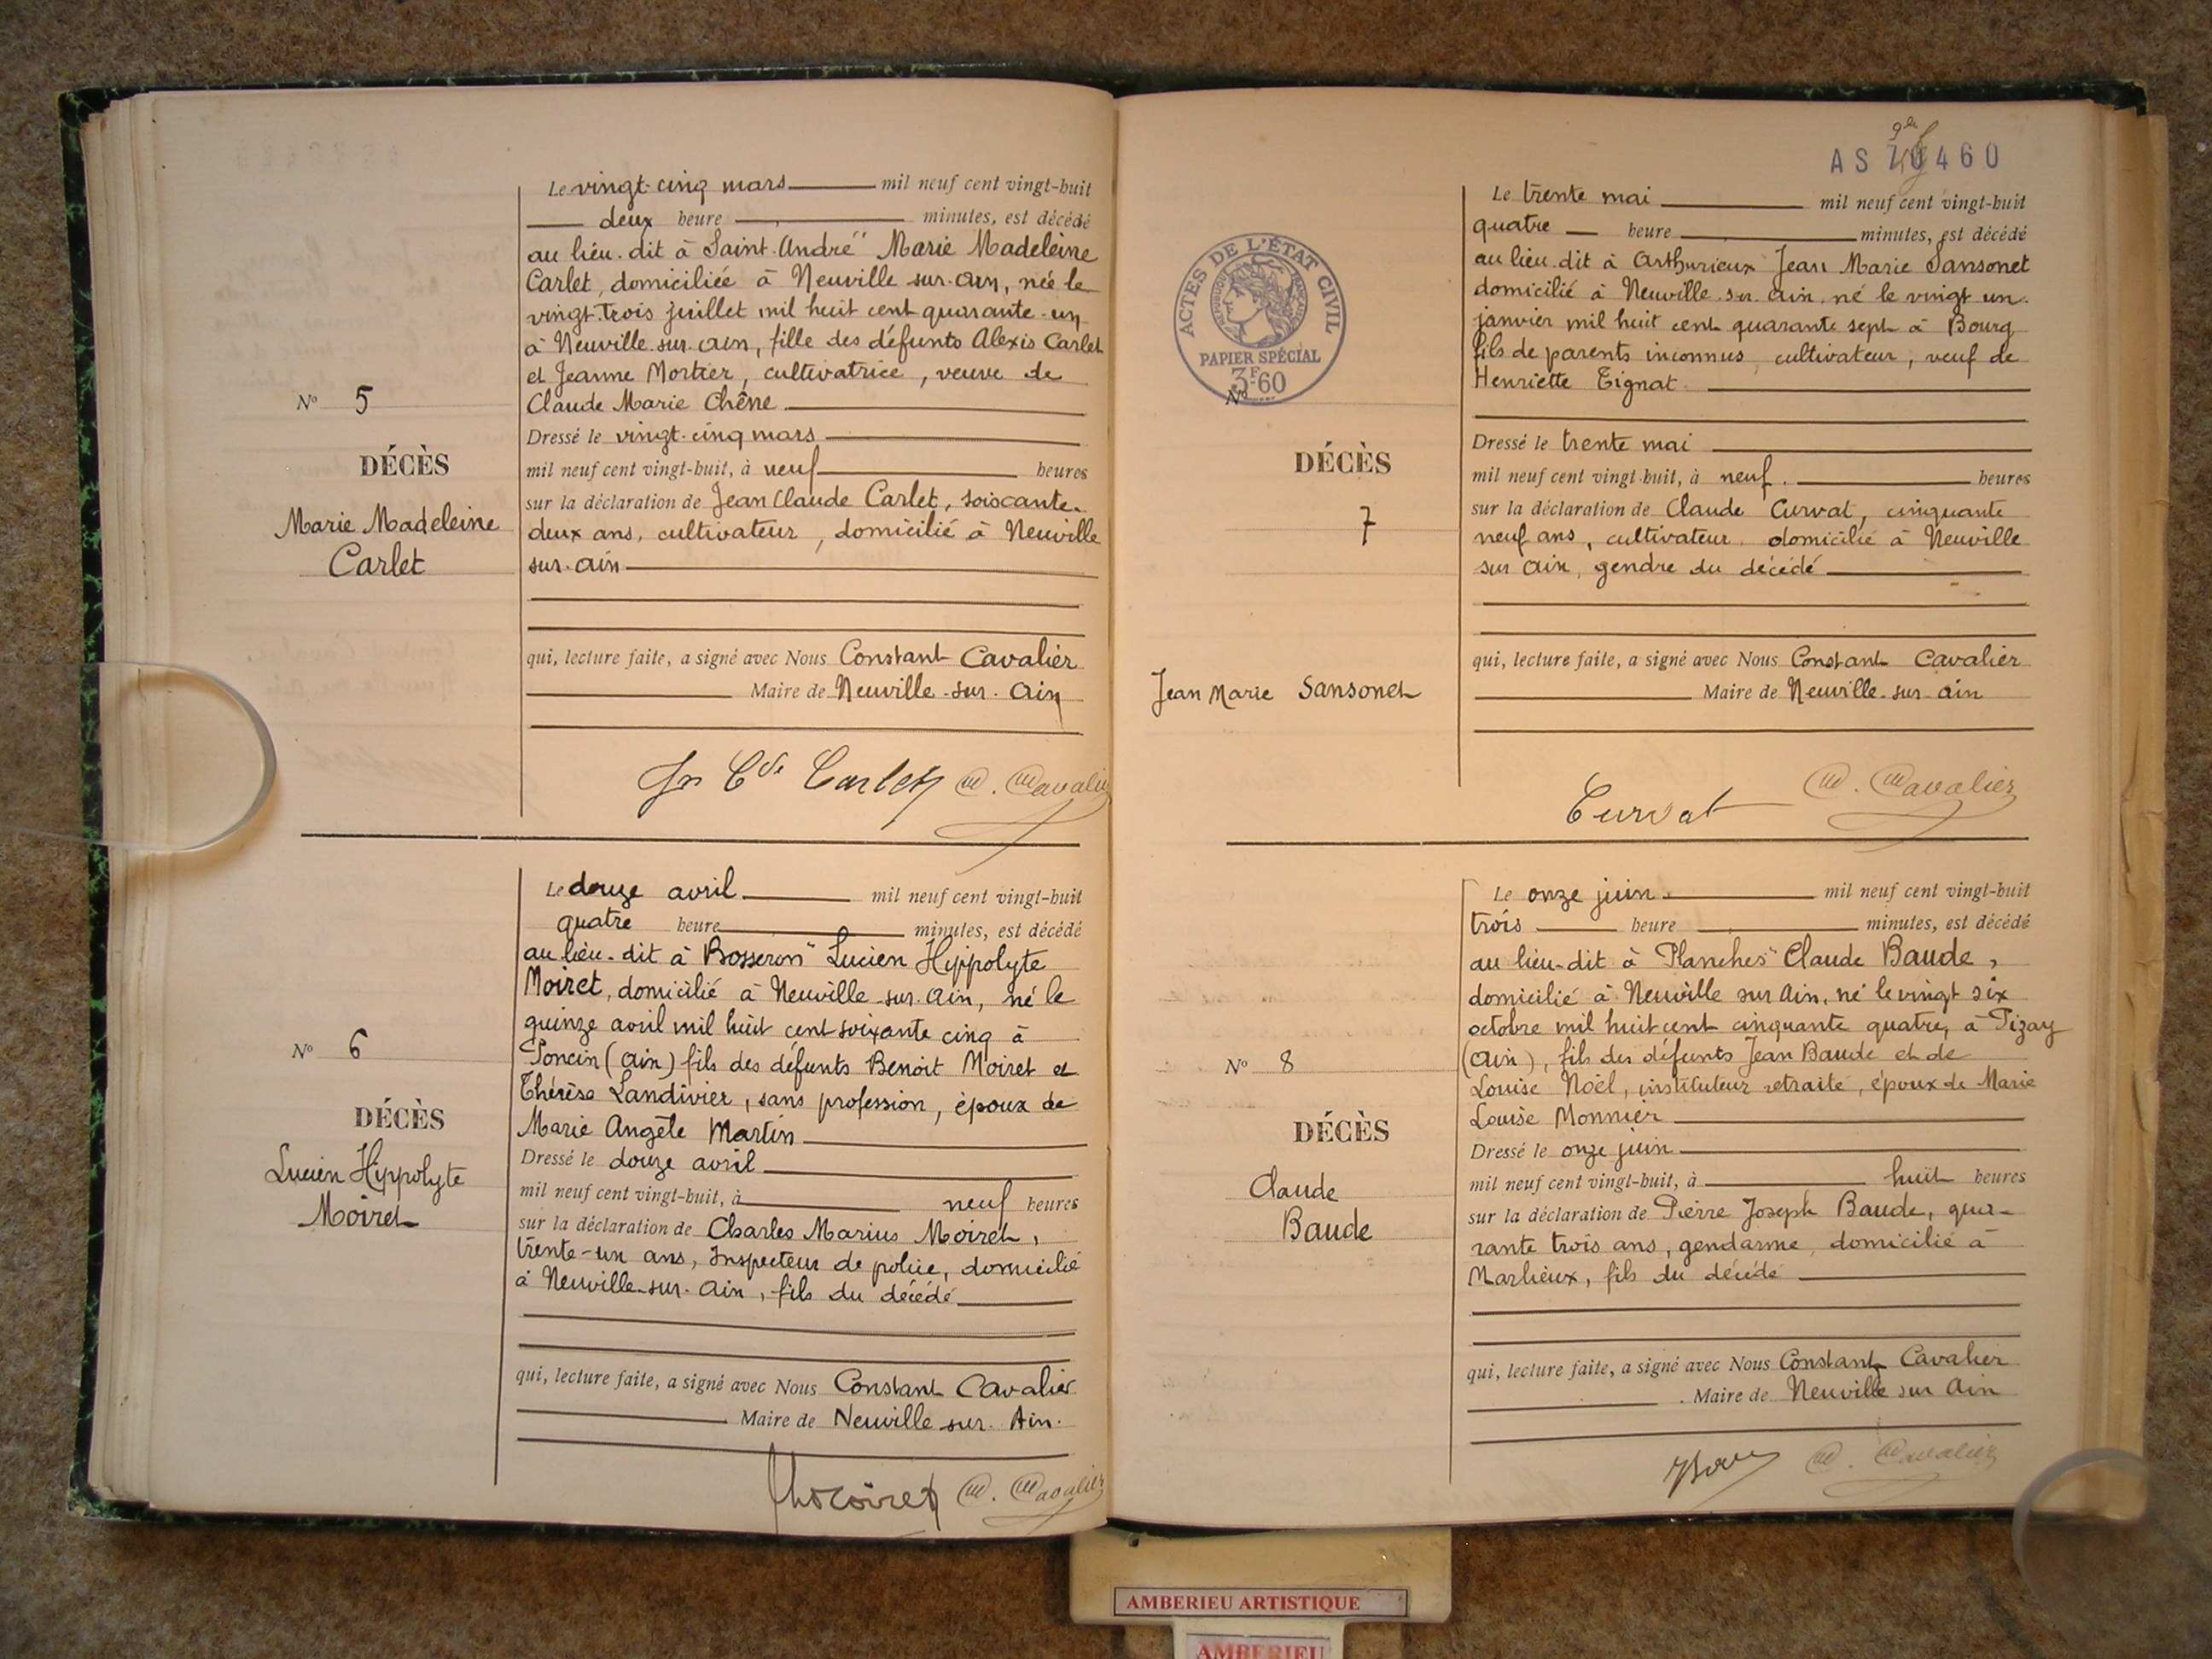 Le vingt-cinq mars mil neuf cent vingt-huit
deux heure minutes, est décédé
au lieu-dit à Saint-André" Marie Madeleine
Carlet, domiciliée à Neuville-sur-Ain, née le
vingt-trois juillet mil huit cent quarante-un
à Neuville-sur-Ain, fille des défunts Alexis Carlet
et Jeanne Mortier, cultivatrice, veuve de
Claude Marie Chêne
Nº 5
Dressé le vingt-cinq mars
DÉCÈS
mil neuf cent vingt-huit, à neuf heures
Marie Madeleine
Carlet
sur la déclaration de Jean Claude Carlet, soixante-
deux ans, cultivateur, domicilié à Neuville
sur-Ain
qui, lecture faite, a signé avec Nous Constant Cavalier
Maire de Neuville-sur-Ain
Jn Cde Carlet C. Cavalier
Le douze avril mil neuf cent vingt-huit
quatre heure minutes, est décédé
au lieu-dit à Bosseron" Lucien Hippolyte
Moiret, domicilié à Neuville-sur-Ain, né le
quinze avril mil huit cent soixante cinq à
Poncin (Ain) fils des défunts Benoit Moiret et
Thérèse Landivier, sans profession, époux de
Marie Angèle Martin
Nº 6
DÉCÈS
Lucien Hippolyte
Moiret
Dressé le douze avril
mil neuf cent vingt-huit, à neuf heures
sur la déclaration de Charles Marius Moiret,
trente-un ans, Inspecteur de police, domicilié
à Neuville-sur-Ain, fils du décédé
qui, lecture faite, a signé avec Nous Constant Cavalier
Maire de Neuville-sur-Ain.
Moiret C. Cavalier
AS 70460
ACTES DE L'ÉTAT CIVIL
RÉPUBLIQUE FRANÇAISE
PAPIER SPÉCIAL
3F60
Le trente mai mil neuf cent vingt-huit
quatre heure minutes, est décédé
au lieu-dit à Arthurieux Jean Marie Sansonet
domicilié à Neuville-sur-Ain, né le vingt un
janvier mil huit cent quarante sept à Bourg
fils de parents inconnus, cultivateur, veuf de
Henriette Tignat
Nº
DÉCÈS
7
Jean Marie Sansonet
Dressé le trente mai
mil neuf cent vingt-huit, à neuf heures
sur la déclaration de Claude Curvat, cinquante
neuf ans, cultivateur domicilié à Neuville
sur Ain, gendre du décédé
qui, lecture faite, a signé avec Nous Constant Cavalier
Maire de Neuville-sur-Ain
Curvat C. Cavalier
Le onze juin mil neuf cent vingt-huit
trois heure minutes, est décédé
au lieu-dit à Planches" Claude Baude,
domicilié à Neuville sur Ain, né le vingt six
octobre mil huit cent cinquante quatre, à Pizay
(Ain), fils des défunts Jean Baude et de
Louise Noël, instituteur retraité, époux de Marie
Louise Monnier
Nº 8
DÉCÈS
Claude
Baude
Dressé le onze juin
mil neuf cent vingt-huit, à huit heures
sur la déclaration de Pierre Joseph Baude, qua-
rante trois ans, gendarme, domicilié à
Marlieux, fils du décédé
qui, lecture faite, a signé avec Nous Constant Cavalier
Maire de Neuville sur Ain
C. Cavalier
AMBERIEU ARTISTIQUE
AMBERIEU